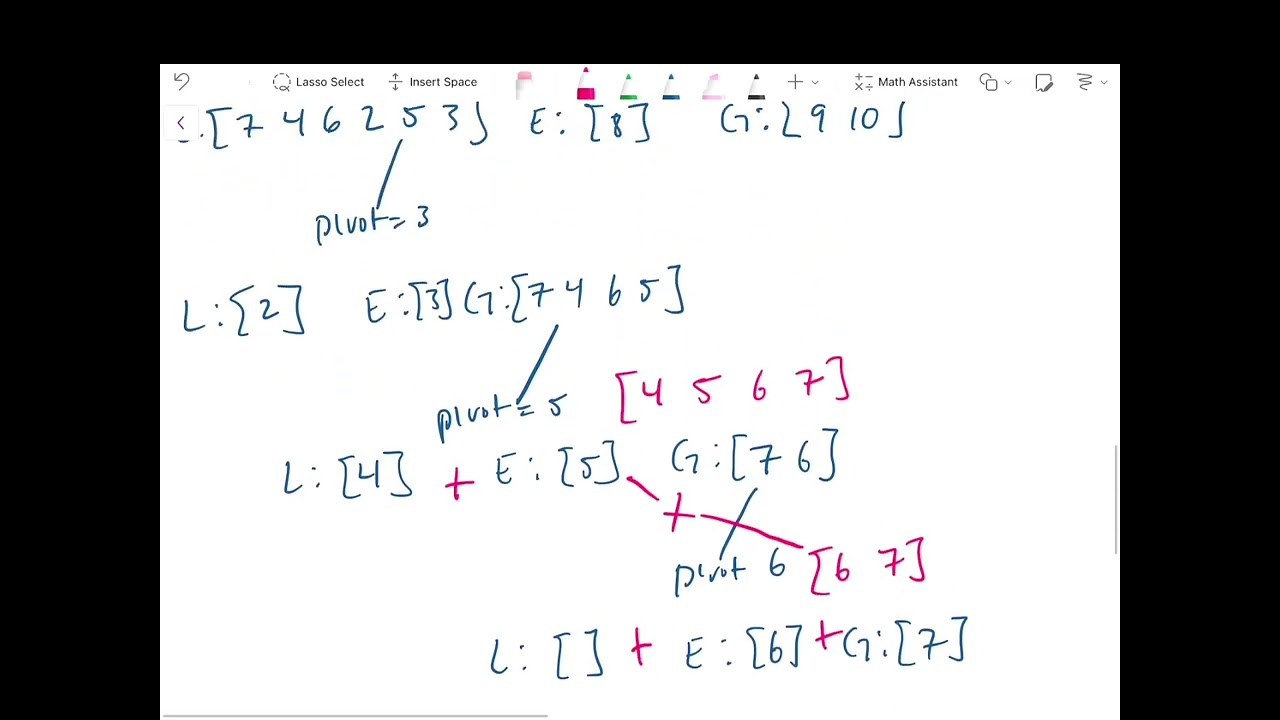 Lasso Select Insert Space Math Assistant
:[7 4 6 2 5 3] E: [8] G: [9 10]
pivot = 3
L: [2] E: [3] G: [7 4 6 5]
[4 5 6 7]
pivot = 5
L: [4] + E: [5] G: [7 6]
+
pivot 6 [6 7]
L: [ ] + E: [6] + G: [7]